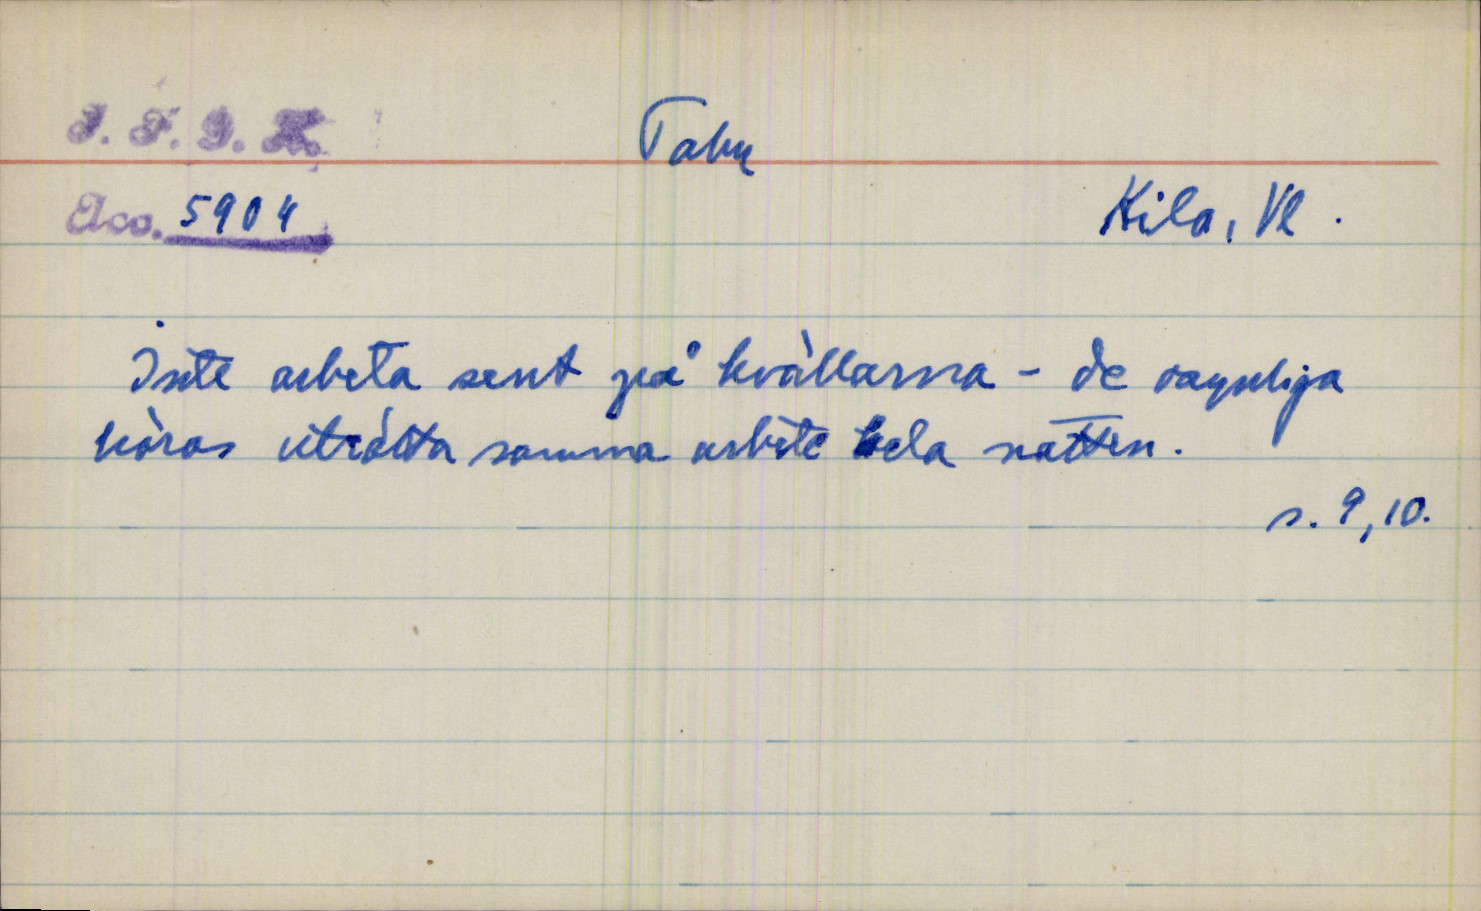 I. F. G. H.
Tabu
Acc. 5904
Kila, Vl.
Inte arbeta sent på kvällarna - de osynliga
höras uträtta samma arbete hela natten.
s. 9, 10.